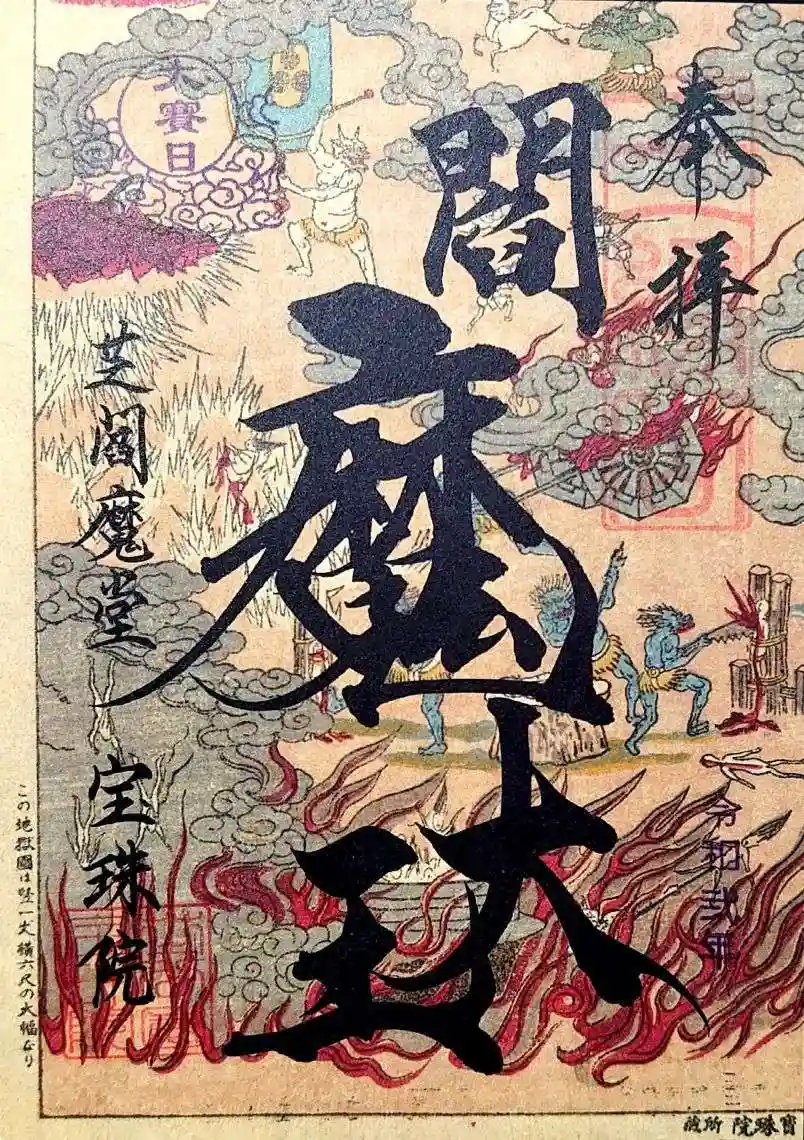 奉拝
閻魔大王
令和弐年
大賽日
芝閻魔堂 宝珠院
この地獄圖は竪一丈横六尺の大幅なり
寶珠院所蔵